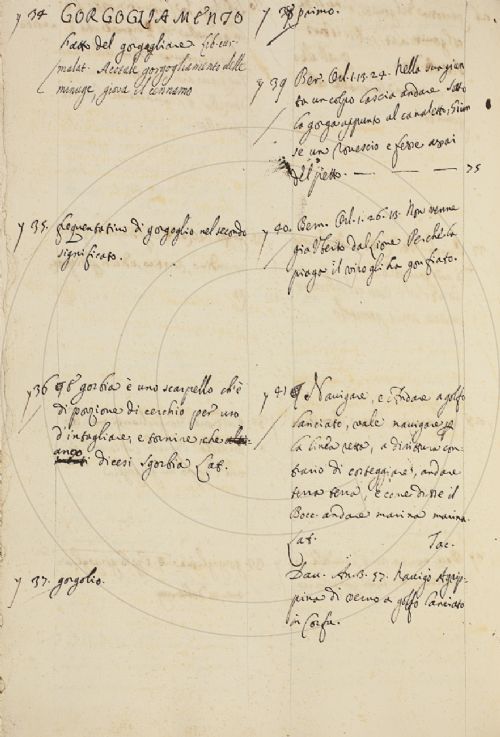 y 34 GORGOGLIAMENTO
fatto del gorgogliare Lib. cur.
malat. Accade gorgogliamento delle
minuge, giova il cennamo
y 35. frequentativo di gorgoglio nel secondo
significato.
y 36 gorbia è uno scarpello ch'è
di porzione di cerchio per uso
d'intagliare, e tornire, che
dicesi sgorbia Lat.
y 37. gorgolio.
y 38 primo.
y 39 Ber. Orl. 1. 15. 24. Nella sua giun
ta un colpo lascia andare sotto
la gorga appunto al canaletto, Giun
se un rovescio e ferse assai
del petto. — — — 75
y 40. Bern. Orl. 1. 26. 13. Non venne
già Uberto dal Lione Perchè la
piaga il viso gli ha gonfiato.
y 41 Navigare, e Andare a golfo
lanciato, vale navigare
la linea retta, a dirittura con-
trario di costeggiare, andare
terra terra, e come disse il
Bocc. andare marina marina.
Lat. Tac.
Dav. An. 3. 57. Navigò Agrip-
pina di verno a golfo lanciato
in Corfu.